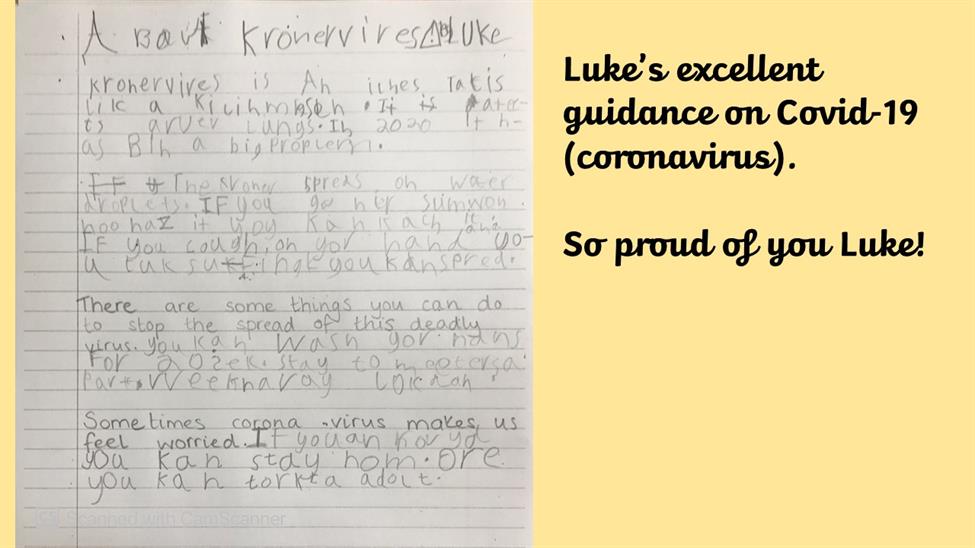 A Bawt kronervires LUKE
kronervires is An ilnes Tat is
lik a It is
ts arver Lungs. In 2020 It h-
as BIn a big proplem.
The kroner spreds on water
droplets. IF you go ner sumwon
hoo haz it you kan kach it and
IF you cough on yor hand yo-
u tuk you kan spred.
There are some things you can do
to stop the spread of this deadly
virus. you kan wash yor hans
For 20 sek. stay to meetersa
part.
Sometimes corona virus makes us
feel worried. If you
you kan stay hom. ore
you kan tork ta adolt.
CS Scanned with CamScanner
Luke's excellent
guidance on Covid-19
(coronavirus).
So proud of you Luke!